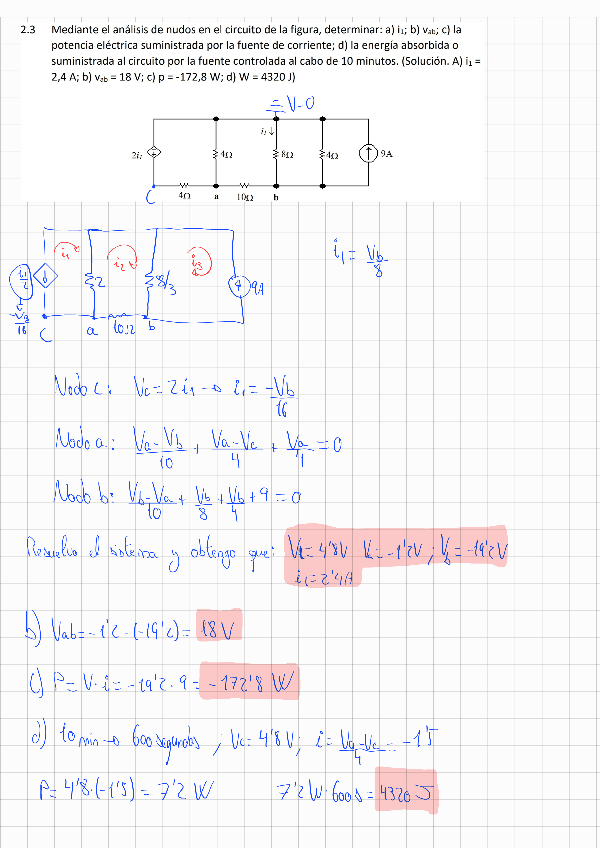 2.3 Mediante el análisis de nudos en el circuito de la figura, determinar: a) i₁; b) vₐb; c) la
potencia eléctrica suministrada por la fuente de corriente; d) la energía absorbida o
suministrada al circuito por la fuente controlada al cabo de 10 minutos. (Solución. A) i₁ =
2,4 A; b) vₐb = 18 V; c) p = -172,8 W; d) W = 4320 J)
= V=0
i₁ ↓
2i₁ 4Ω 8Ω 4Ω 9A
C 4Ω a 10Ω b
i₁ i₂ i₃
i₁ = Vb/8
2 8/3 9A
C a 10Ω b
Nodo c: Vc = 2i₁ → i₁ = -Vb/16
Nodo a: Va-Vb/10 + Va-Vc/4 + Va/4 = 0
Nodo b: Vb-Va/10 + Vb/8 + Vb/4 + 9 = 0
Resuelvo el sistema y obtengo que: Vc = 4'8V Va = -1'2V ; Vb = -19'2V
i₁ = 2'4A
b) Vab = -1'2 - (-19'2) = 18 V
c) P = V · i = -19'2 · 9 = -172'8 W
d) 10 min → 600 segundos ; Vc = 4'8 V ; i = Va-Vc/4 = -1'5
P = 4'8 · (-1'5) = 7'2 W 7'2 W · 600 s = 4320 J